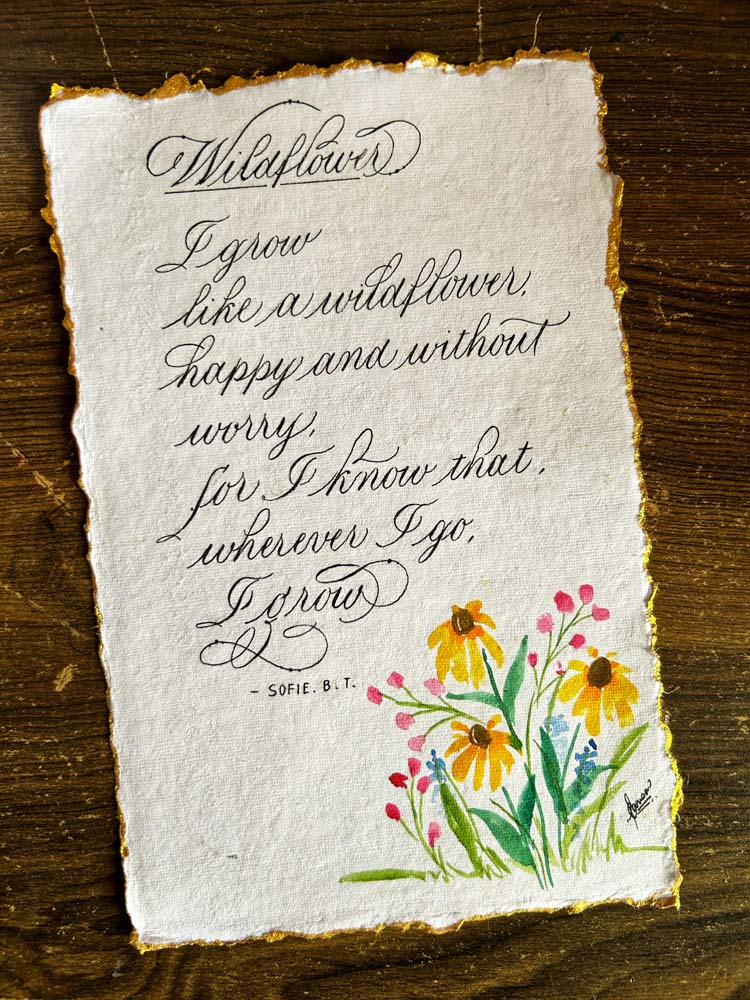 Wildflower
I grow
like a wildflower,
happy and without
worry,
for I know that,
wherever I go,
I grow
- SOFIE. B. T.